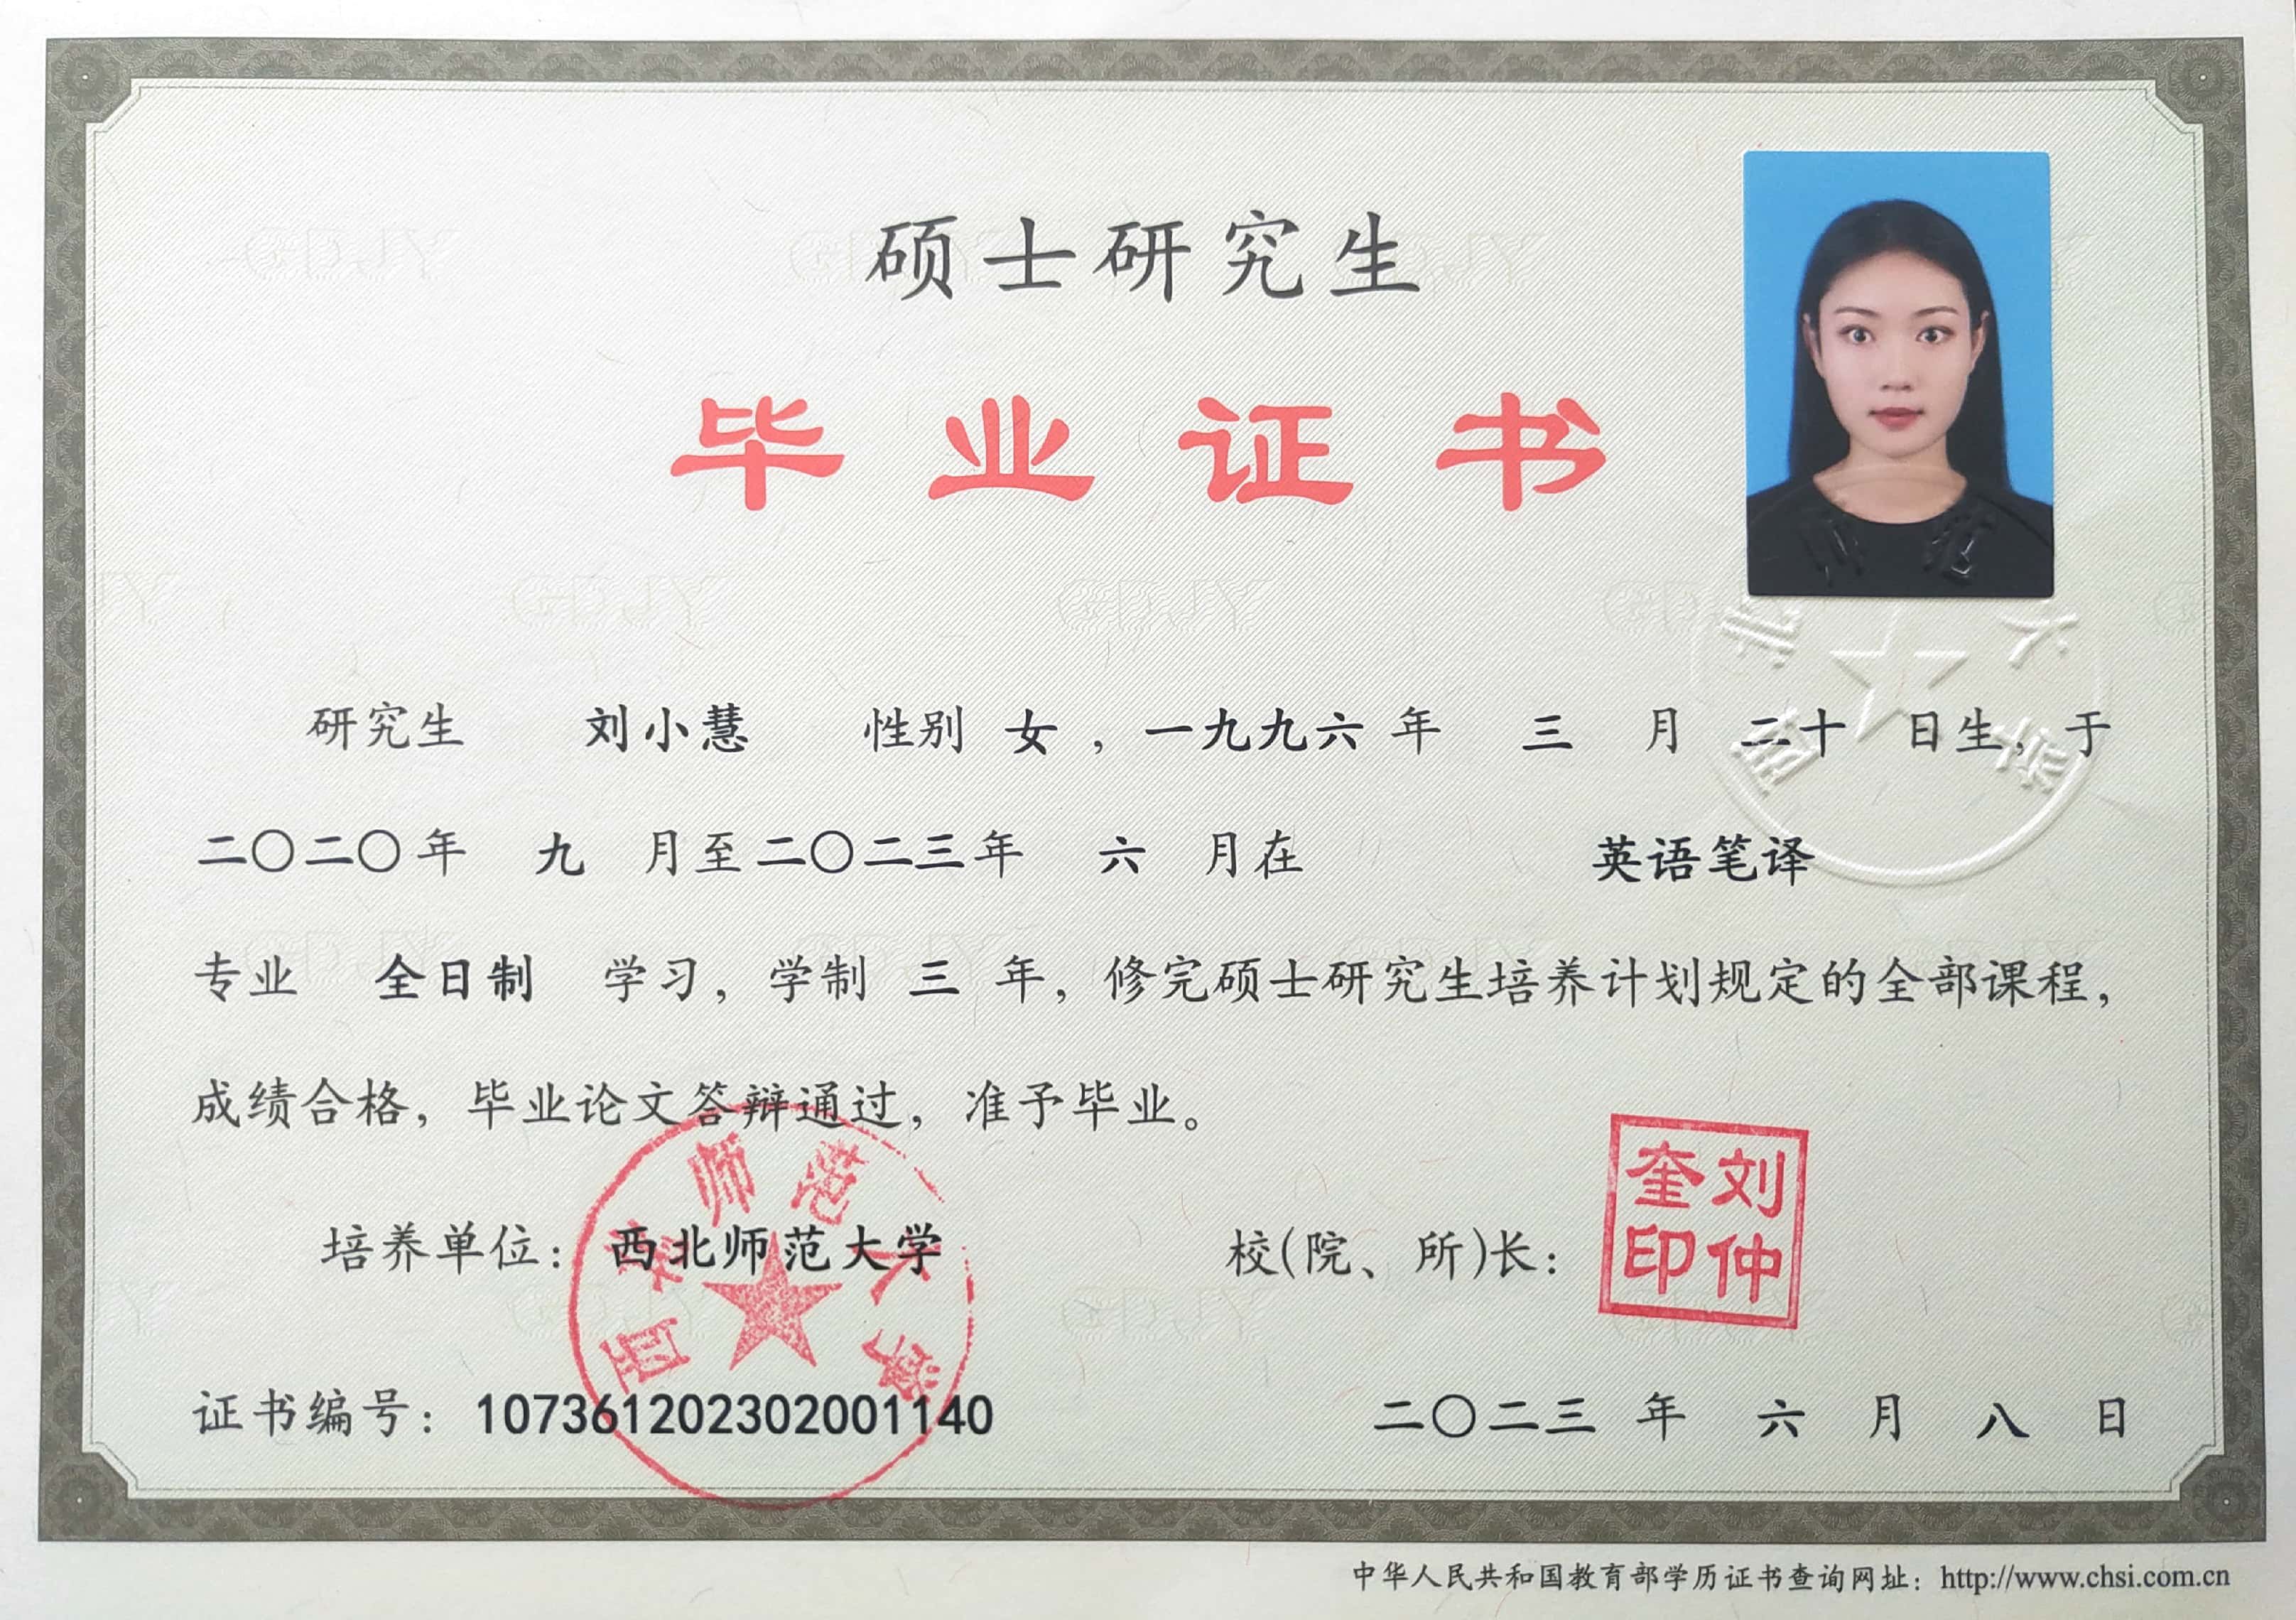 硕士研究生
毕业证书
研究生 刘小慧 性别 女，一九九六 年 三 月 二十 日生，于
二〇二〇年 九 月至二〇二三年 六 月在 英语笔译
专业 全日制 学习，学制 三 年，修完硕士研究生培养计划规定的全部课程，
成绩合格，毕业论文答辩通过，准予毕业。
培养单位：西北师范大学
西北师范大学
校(院、所)长：
刘仲奎印
证书编号：107361202302001140
二〇二三 年 六 月 八 日
中华人民共和国教育部学历证书查询网址：http://www.chsi.com.cn